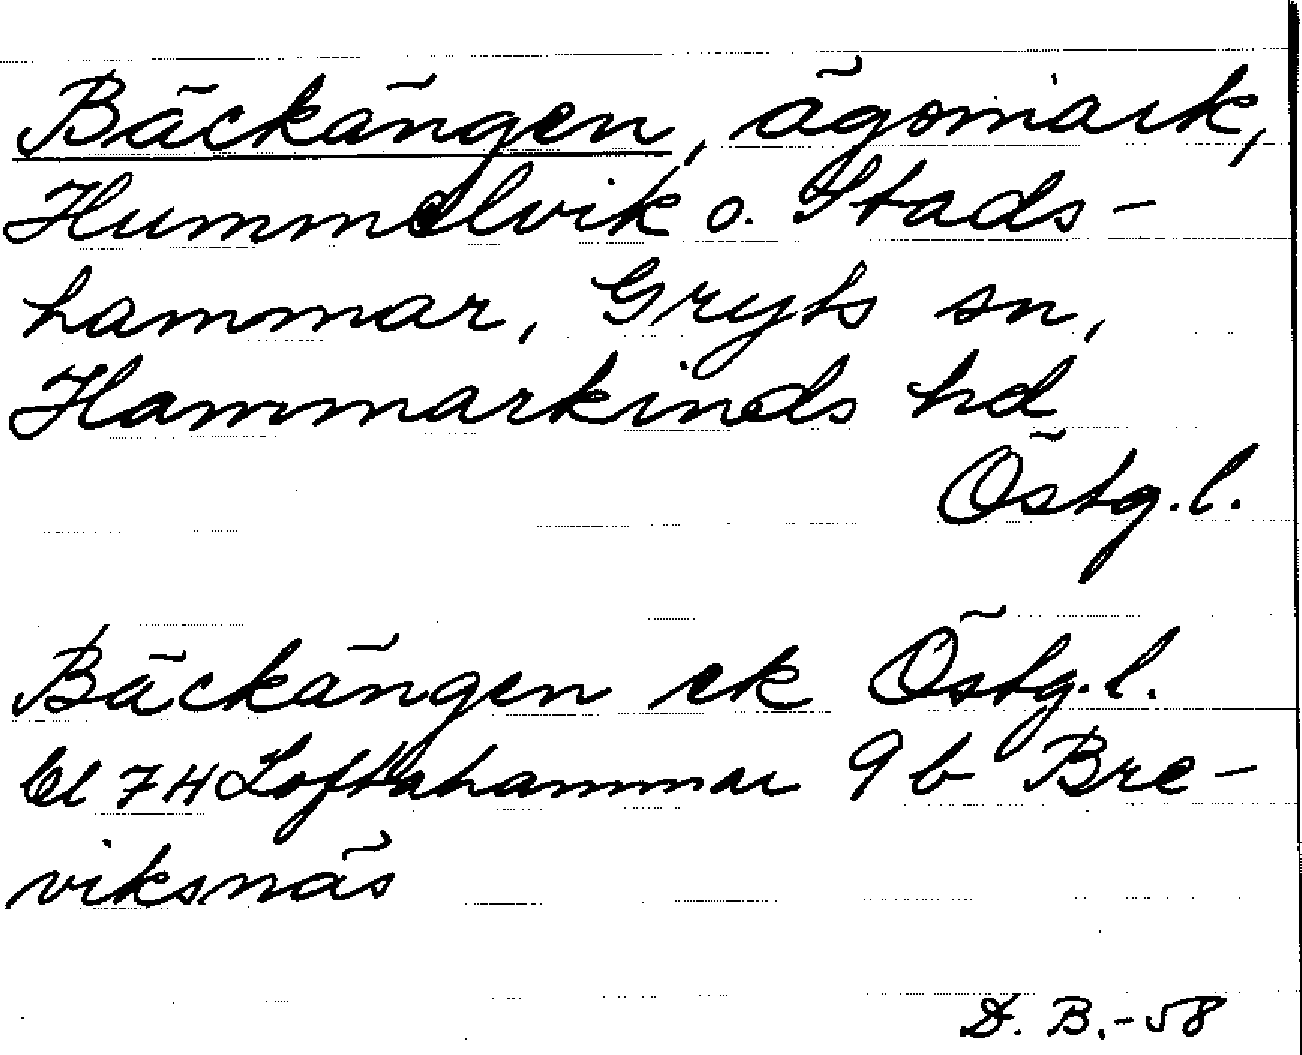 Bäckängen, ägomark,
Hummelvik o. Stads-
hammar, Gryts sn,
Hammarkinds hd
Östg.l.
Bäckängen ek Östg.l.
bl 7H Loftahammar 9b Bre-
viksnäs
D.B.-58